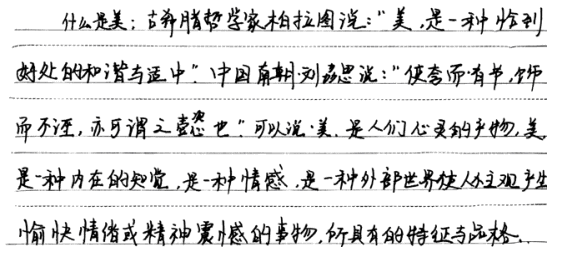 什么是美：古希腊哲学家柏拉图说：“美，是一种恰到
好处的和谐与适中”。中国南朝刘勰说：“使夸而有节，饰
而不诬，亦可谓之懿也”可以说，美，是人们心灵的产物，美
是一种内在的知觉，是一种情感，是一种外部世界使人主观产生
愉快情绪或精神震憾的事物，所具有的特征与品格。